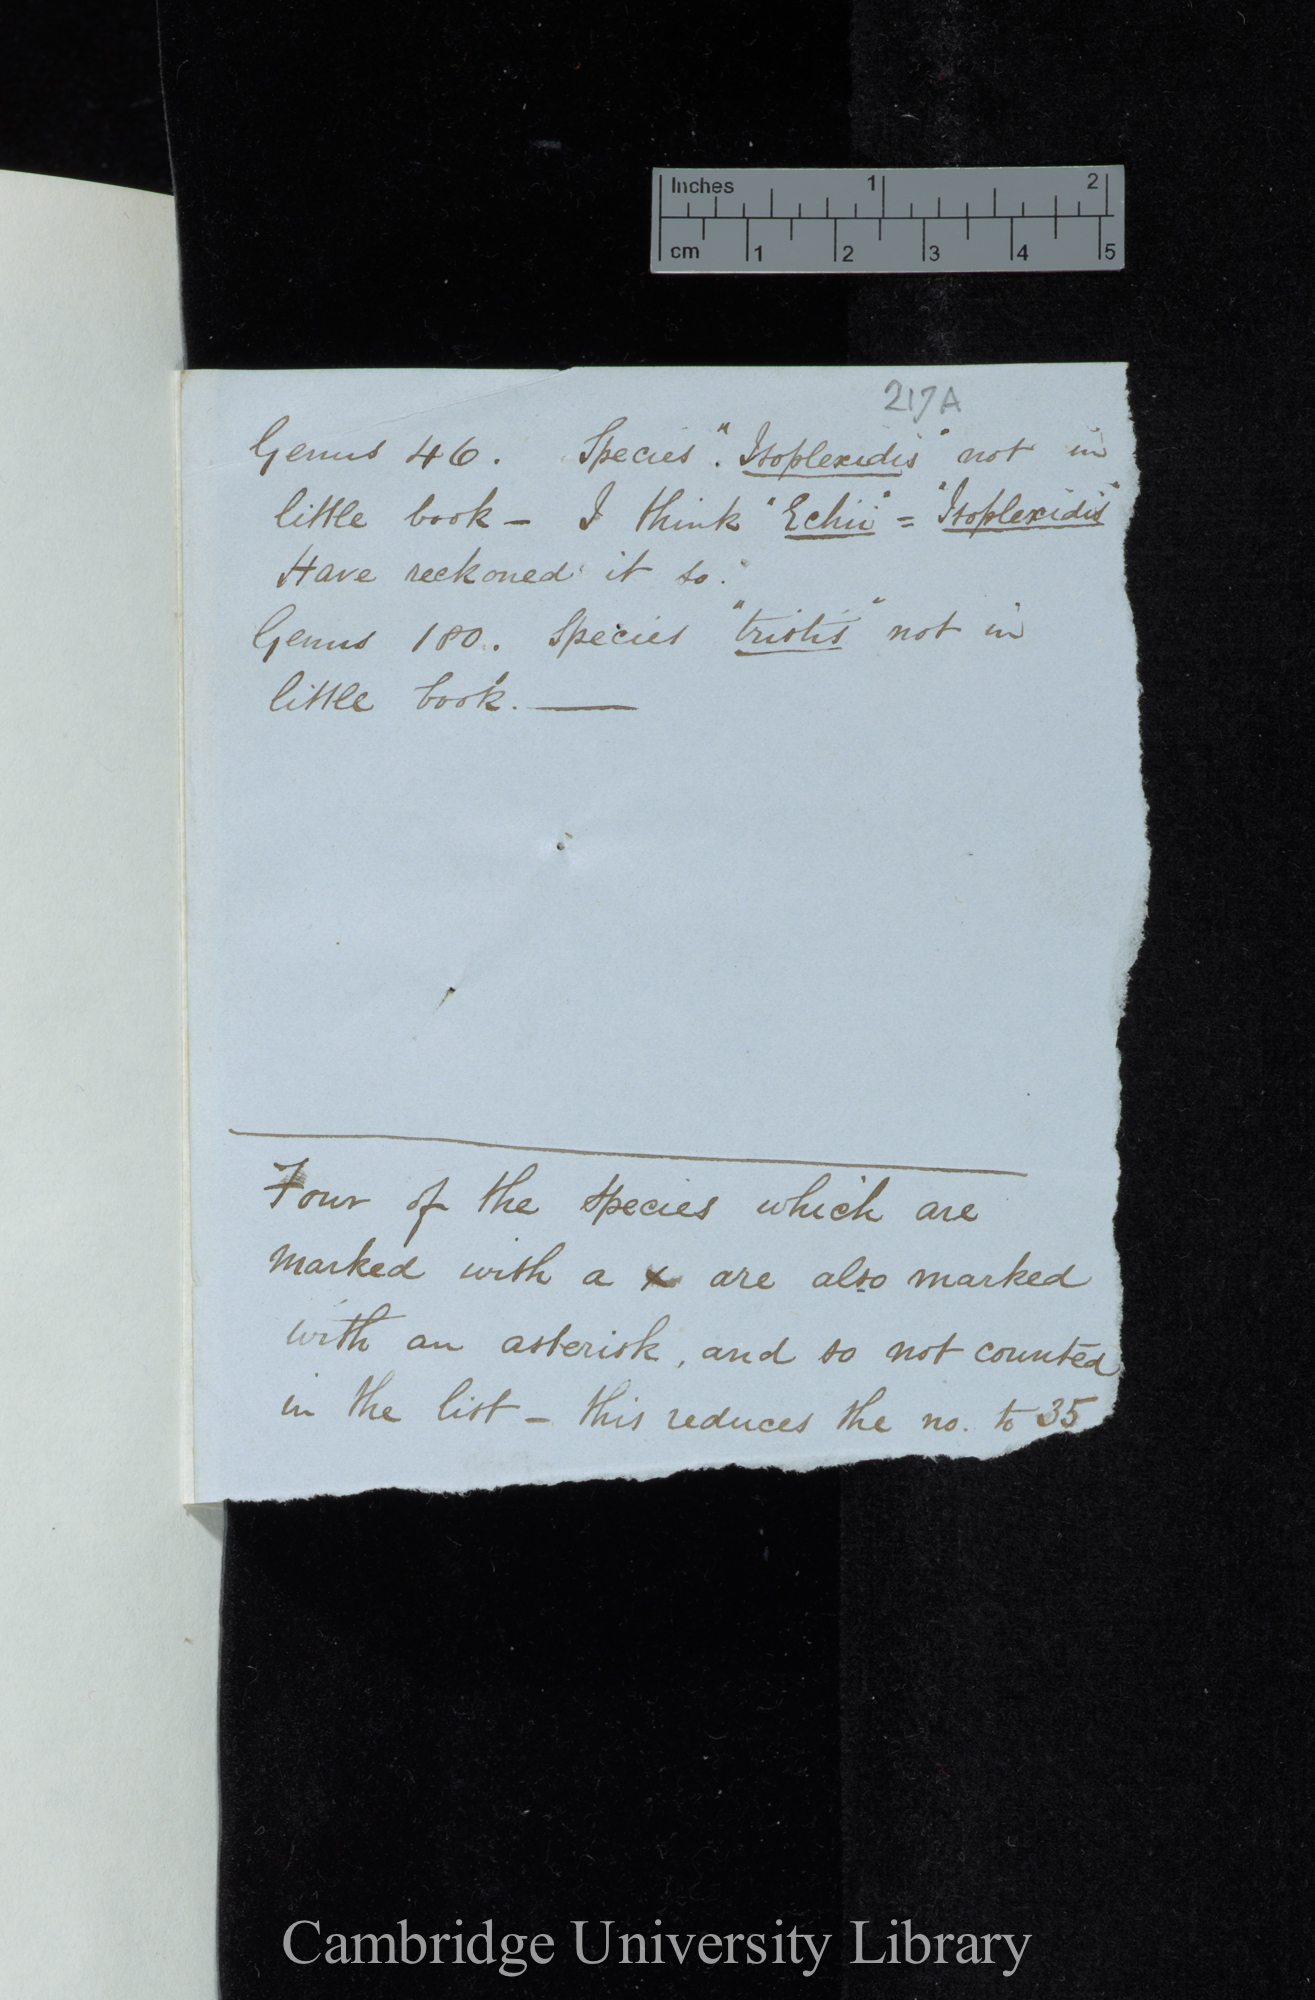 Inches 1 2
cm 1 2 3 4 5
217A
Genus 46. Species "Isoplexidis" not in
little book — I think "Echii" = "Isoplexidis"
Have reckoned it so.
Genus 180. Species "tristis" not in
little book. ——
Four of the species which are
marked with a x are also marked
with an asterisk, and so not counted
in the list — this reduces the no. to 35
Cambridge University Library